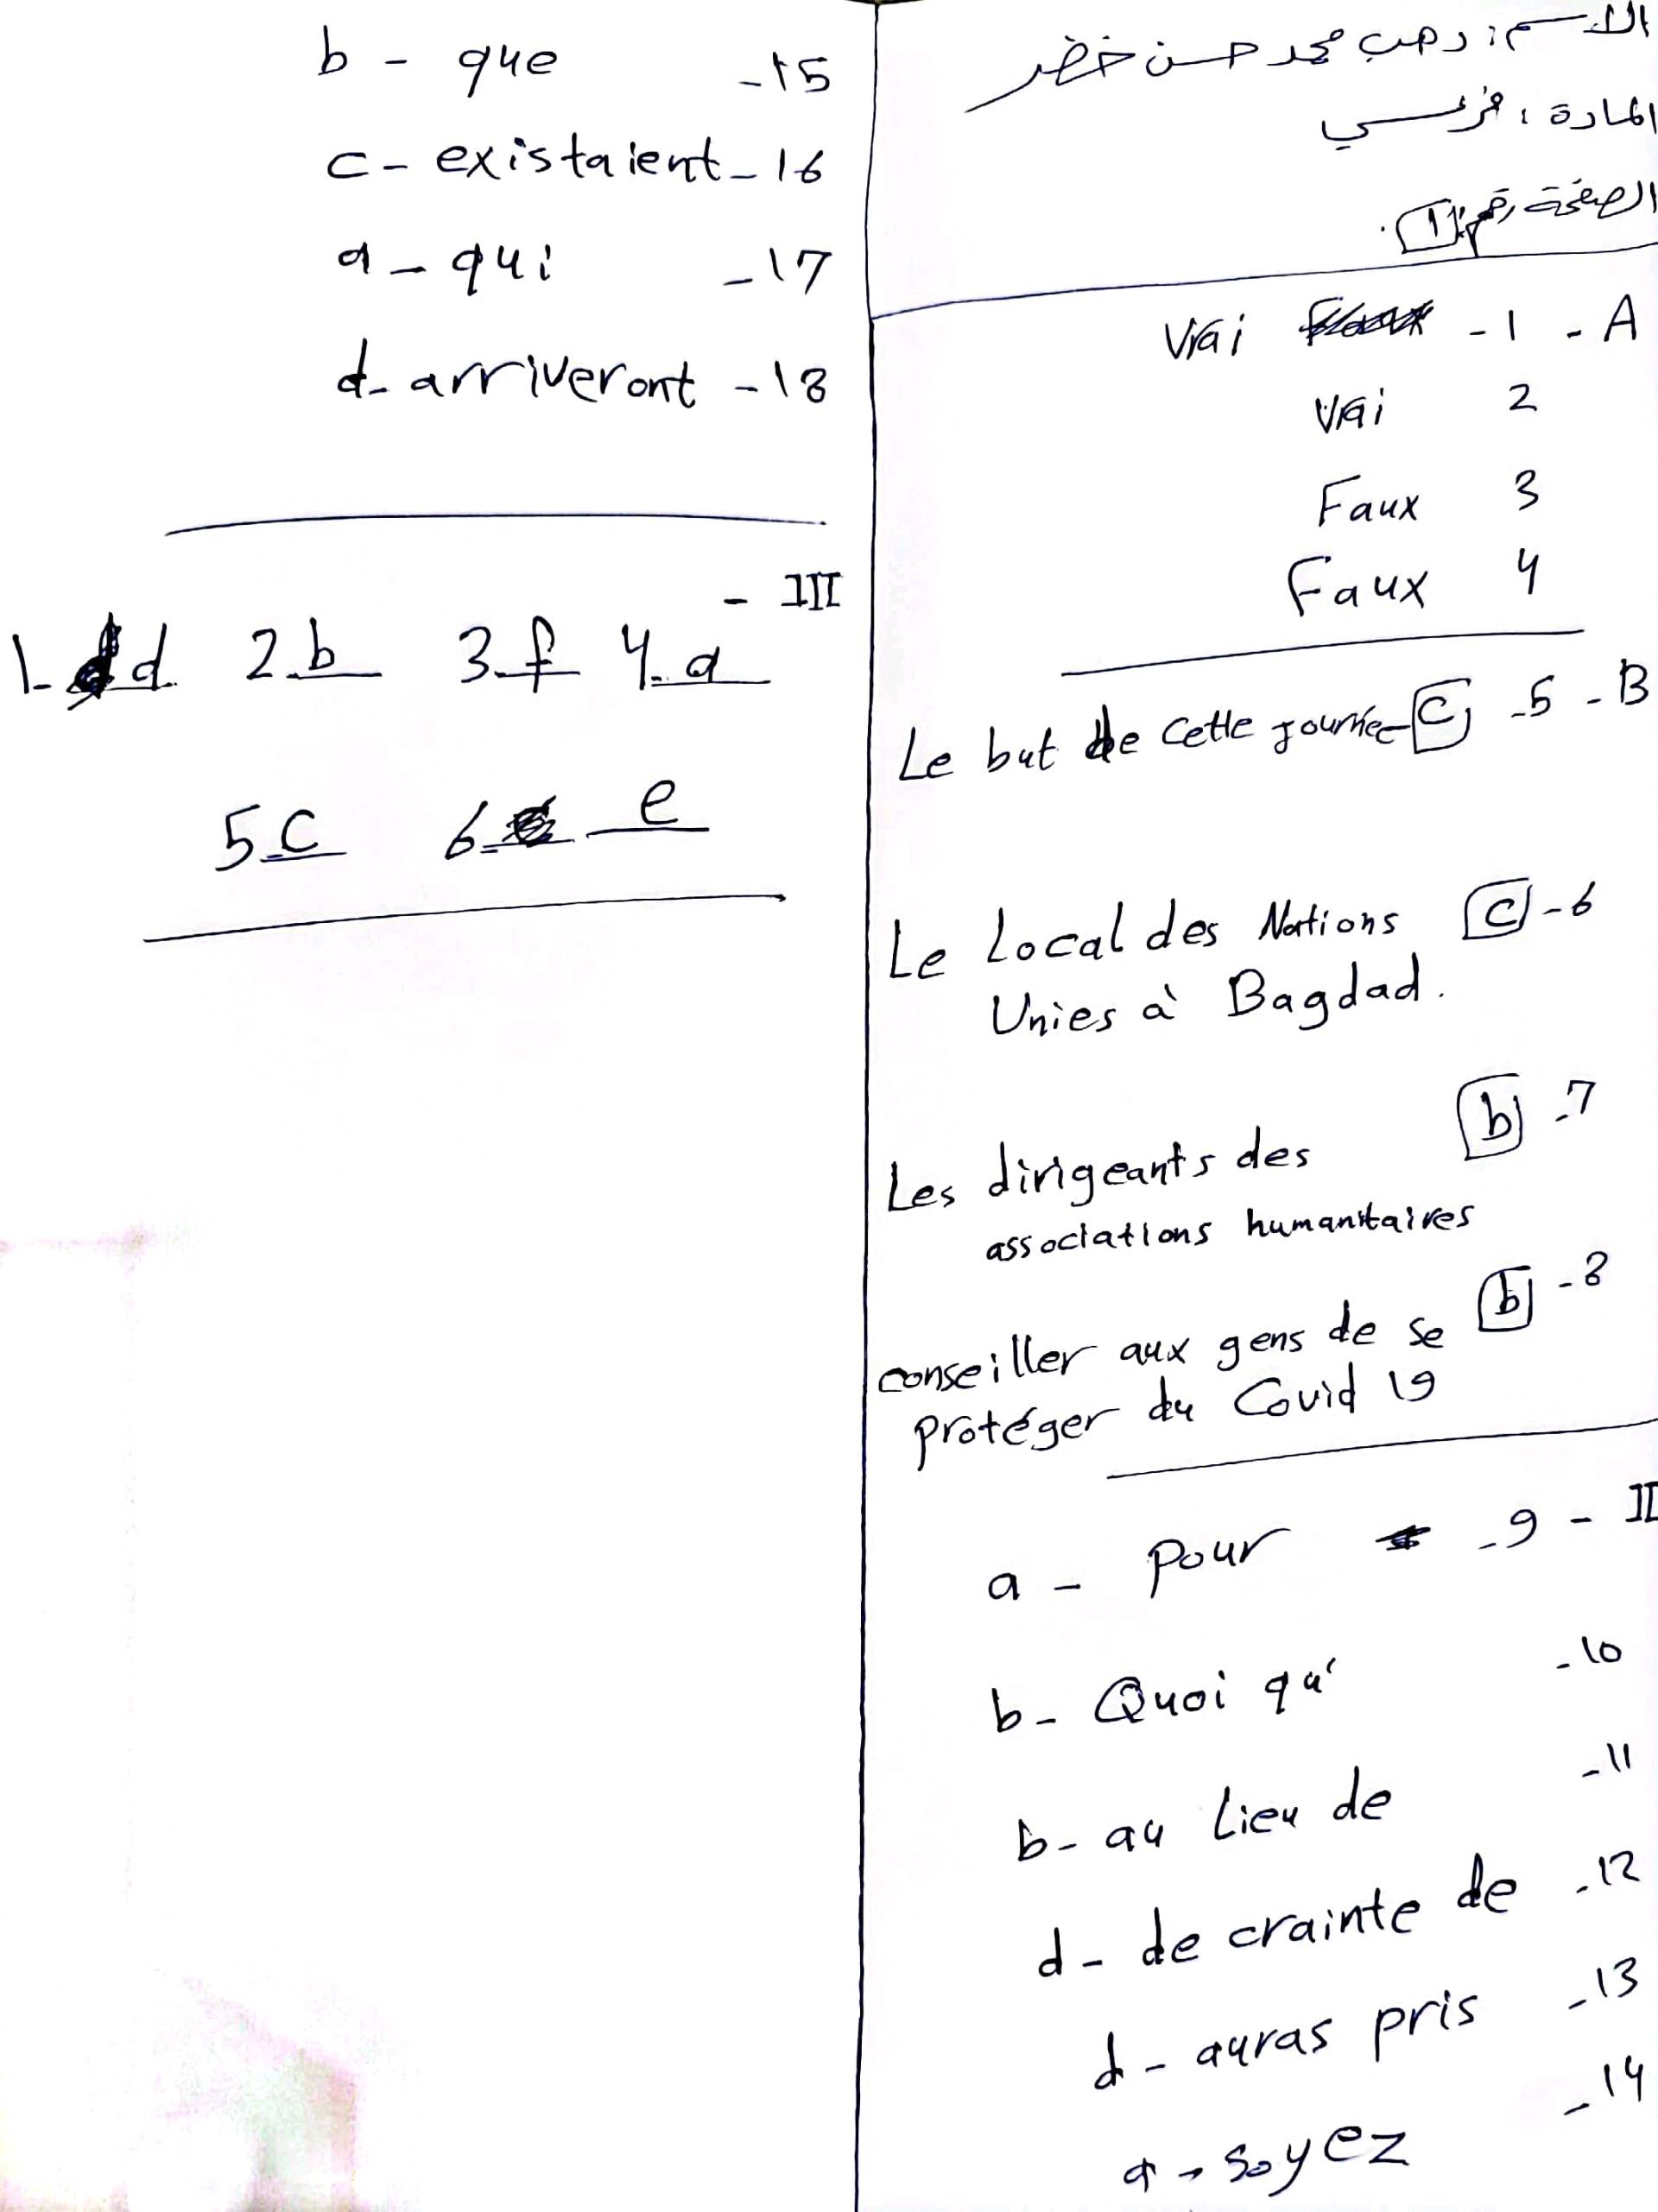 الاسم: رهب محمد حسن خضر
المادة: فرنسي
الصفحة رقم: 1.
A - 1 - Vrai
2 Vrai
3 Faux
4 Faux
B - 5 - C, Le but de cette journée
6 - C Le Local des Nations
Unies à Bagdad.
7 - b
Les dirigeants des
associations humanitaires
8 - b conseiller aux gens de se
protéger du Covid 19
II - 9 - a - Pour
10 - b - Quoi qu'
11 - b - au Lieu de
12 - d - de crainte de
13 - d - auras pris
14 - a - soyez
15 - b - que
16 - c - existaient
17 - a - qui
18 - d - arriveront
III -
1 - d 2 - b 3 - f 4 - a
5 - c 6 - e